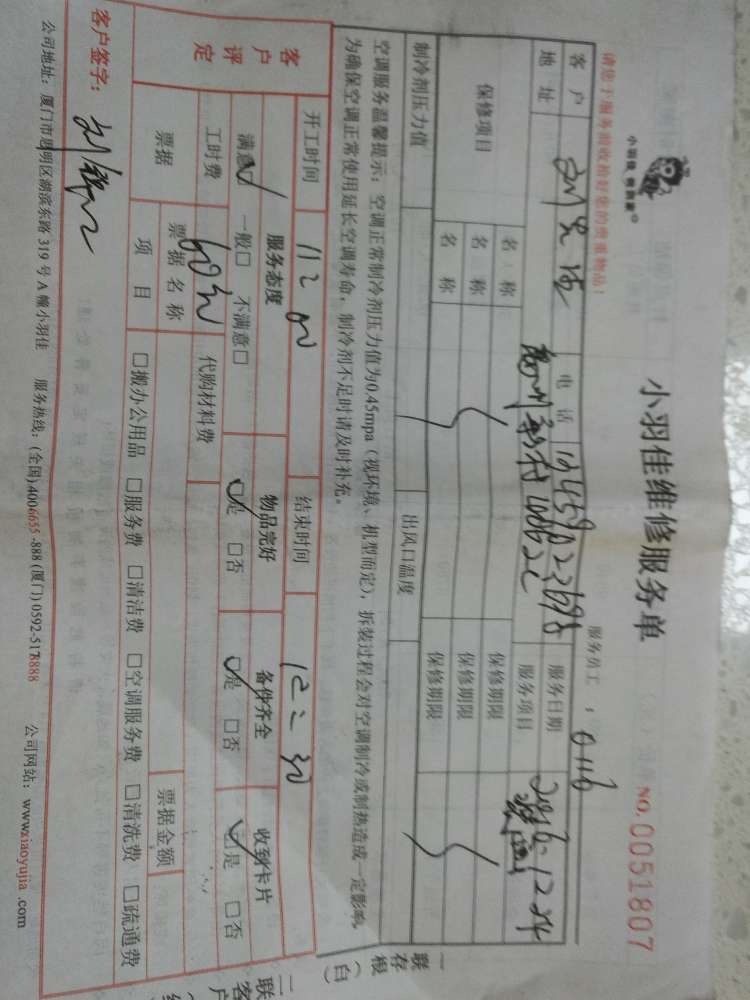 小羽佳维修服务单
小羽佳 修到家
请您于服务前收检好您的贵重物品!
服务员工:0116
NO.0051807
客户 电话 服务日期 2016.12.24
地址 服务项目
保修项目 名称 保修期限
名称 保修期限
名称 保修期限
制冷剂压力值 出风口温度
空调服务温馨提示:空调正常制冷剂压力值为0.45mpa(视环境、机型而定),拆装过程会对空调制冷或制热造成一定影响,
为确保空调正常使用延长空调寿命,制冷剂不足时请及时补充。
开工时间 11:00 结束时间 12:30
客户评定 服务态度 物品完好 备件齐全 收到卡片
满意☑ 一般□ 不满意□ ☑是 □否 ☑是 □否 ☑是 □否
工时费 60元 代购材料费
票据 票据名称 票据金额
项目 □搬办公用品 □服务费 □清洁费 □空调服务费 □清洗费 □疏通费
客户签字:
公司地址:厦门市思明区湖滨东路319号A幢小羽佳 服务热线:(全国)4006655-888(厦门)0592-5178888 公司网站:www.xiaoyujia.com
一联存根(白)
二联客户